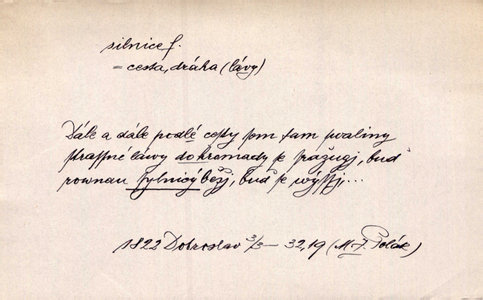 silnice f.
= cesta, dráha (lávy)
Dále a dále podlé cesty sem tam swaliny
strassné láwy dohromady se sražugj, buď
rownau sylnicý běžj, buď se wýssj,...
1822 Dobroslav 3/3 – 32,19 (M. Z. Polák)